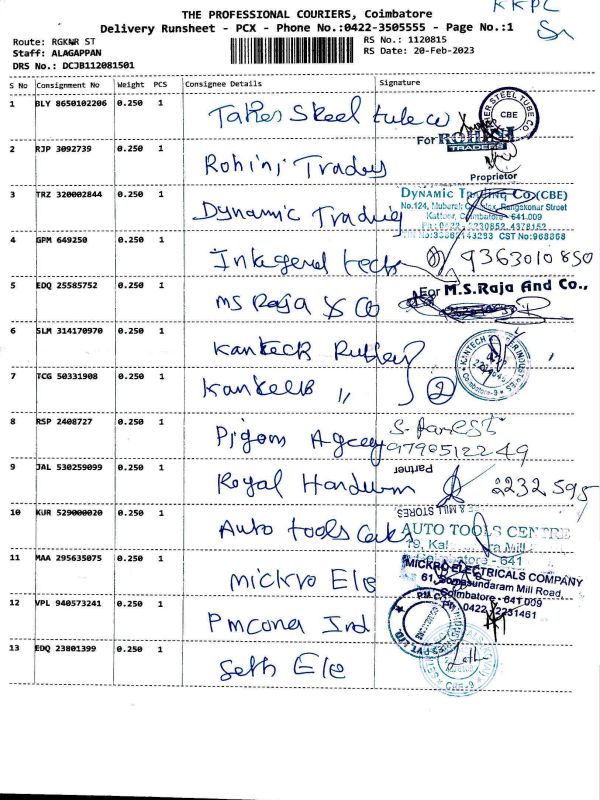 KKPC
THE PROFESSIONAL COURIERS, Coimbatore
Delivery Runsheet - PCX - Phone No.:0422-3505555 - Page No.:1
Route: RGKNR ST
RS No.: 1120815
Staff: ALAGAPPAN
RS Date: 20-Feb-2023
DRS No.: DCJB112081501
S No Consignment No Weight PCS Consignee Details Signature
1 BLY 8650102206 0.250 1 Steel tube co
STEEL TUBE CO. CBE
2 RJP 3092739 0.250 1 Rohini Traders
For ROHINI
TRADERS
Proprietor
3 TRZ 320002844 0.250 1 Dynamic Trading
Dynamic Trading Co (CBE)
No.124, Mubarak Complex, Rangakonar Street
Kattoor, Coimbatore - 641.009
Ph: 0422 - 2230852, 4378152
CST No: 968868
4 GPM 649250 0.250 1 tech 9363010850
5 EDQ 25585752 0.250 1 MS Raja & Co
For M.S.Raja And Co.,
6 SLM 314170970 0.250 1 Kanteck Rubber
7 TCG 50331908 0.250 1 Kanteck 〃 2
8 RSP 2408727 0.250 1 Agcey
9790512249
Partner
9 JAL 530259099 0.250 1 Royal 2232595
10 KUR 529000020 0.250 1 Auto tools
& MILL STORES
AUTO TOOLS CENTRE
79,
641
11 MAA 295635075 0.250 1 Mickro Ele
MICKRO ELECTRICALS COMPANY
61, Somasundaram Mill Road,
Coimbatore - 641 009
Ph: 0422 2231461
12 VPL 940573241 0.250 1 Pmcona Ind
13 EDQ 23801399 0.250 1 Seth Ele